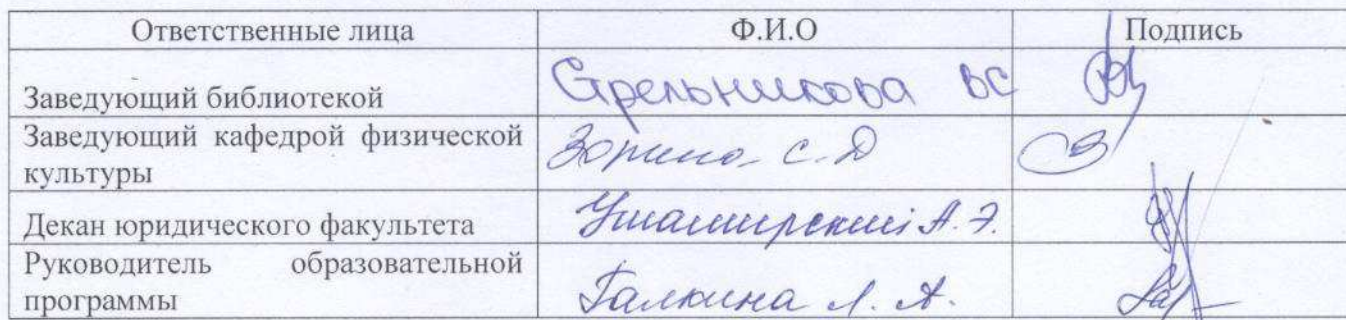 Ответственные лица Ф.И.О Подпись
Заведующий библиотекой Стрельникова ВС
Заведующий кафедрой физической
культуры Зорина С.Д
Декан юридического факультета А.Э.
Руководитель образовательной
программы Галкина Л.А.